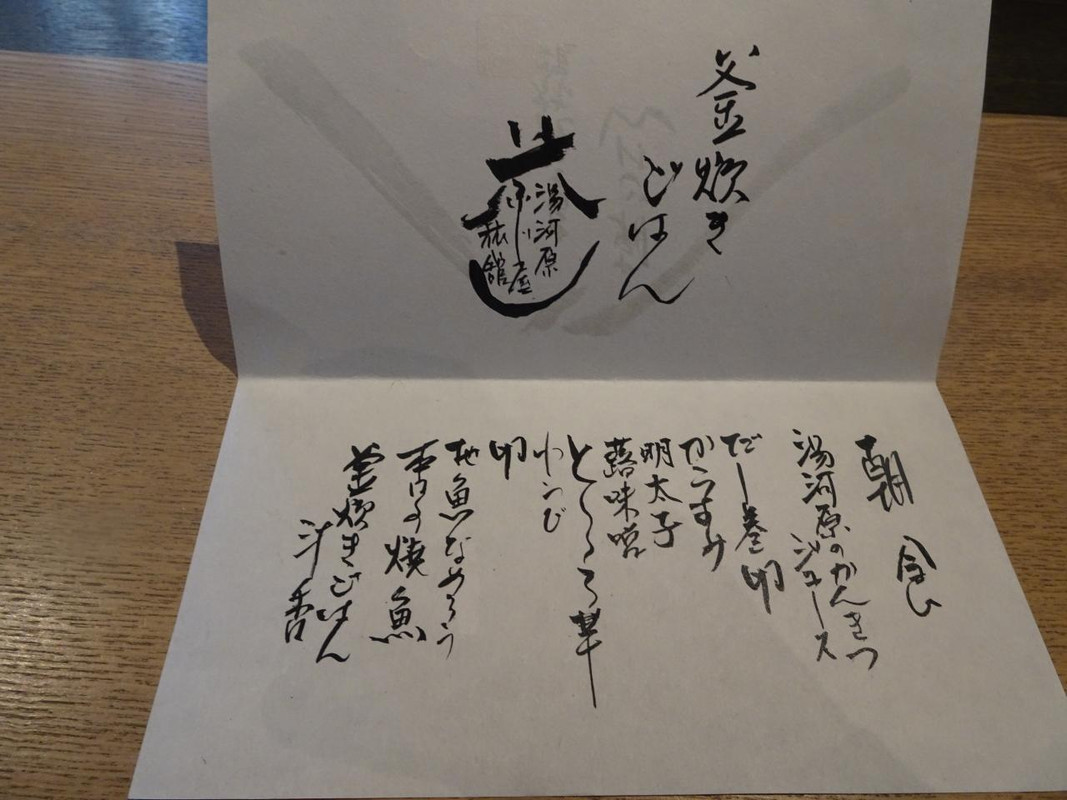 釜炊き
ごはん
湯河原
旅館
朝食
湯河原のかんきつ
ジュース
だし巻卵
からすみ
明太子
蕗味噌
わらび
卵
地魚なめろう
本日の焼魚
釜炊きごはん
汁 香